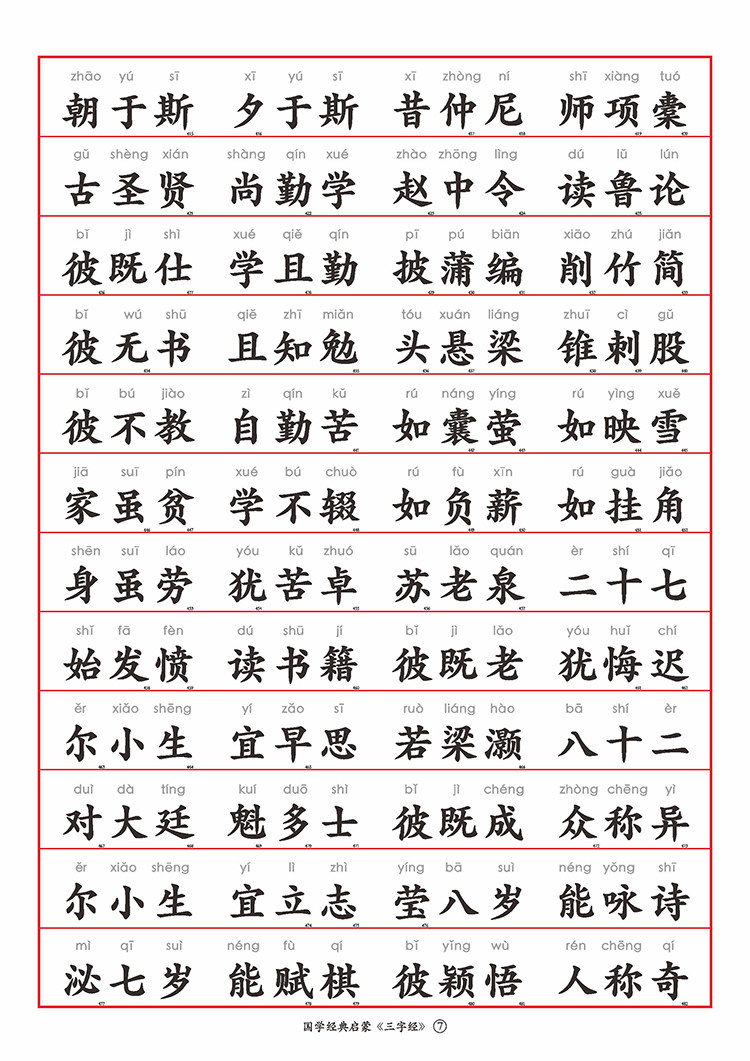 zhāo yú sī xī yú sī xī zhòng ní shī xiàng tuó
朝于斯 夕于斯 昔仲尼 师项橐
gǔ shèng xián shàng qín xué zhào zhōng lìng dú lǔ lún
古圣贤 尚勤学 赵中令 读鲁论
bǐ jì shì xué qiě qín pī pú biān xiāo zhú jiǎn
彼既仕 学且勤 披蒲编 削竹简
bǐ wú shū qiě zhī miǎn tóu xuán liáng zhuī cì gǔ
彼无书 且知勉 头悬梁 锥刺股
bǐ bú jiào zì qín kǔ rú náng yíng rú yìng xuě
彼不教 自勤苦 如囊萤 如映雪
jiā suī pín xué bú chuò rú fù xīn rú guà jiǎo
家虽贫 学不辍 如负薪 如挂角
shēn suī láo yóu kǔ zhuó sū lǎo quán èr shí qī
身虽劳 犹苦卓 苏老泉 二十七
shǐ fā fèn dú shū jí bǐ jì lǎo yóu huǐ chí
始发愤 读书籍 彼既老 犹悔迟
ěr xiǎo shēng yí zǎo sī ruò liáng hào bā shí èr
尔小生 宜早思 若梁灏 八十二
duì dà tíng kuí duō shì bǐ jì chéng zhòng chēng yì
对大廷 魁多士 彼既成 众称异
ěr xiǎo shēng yí lì zhì yíng bā suì néng yǒng shī
尔小生 宜立志 莹八岁 能咏诗
mì qī suì néng fù qí bǐ yǐng wù rén chēng qí
泌七岁 能赋棋 彼颖悟 人称奇
国学经典启蒙《三字经》⑦